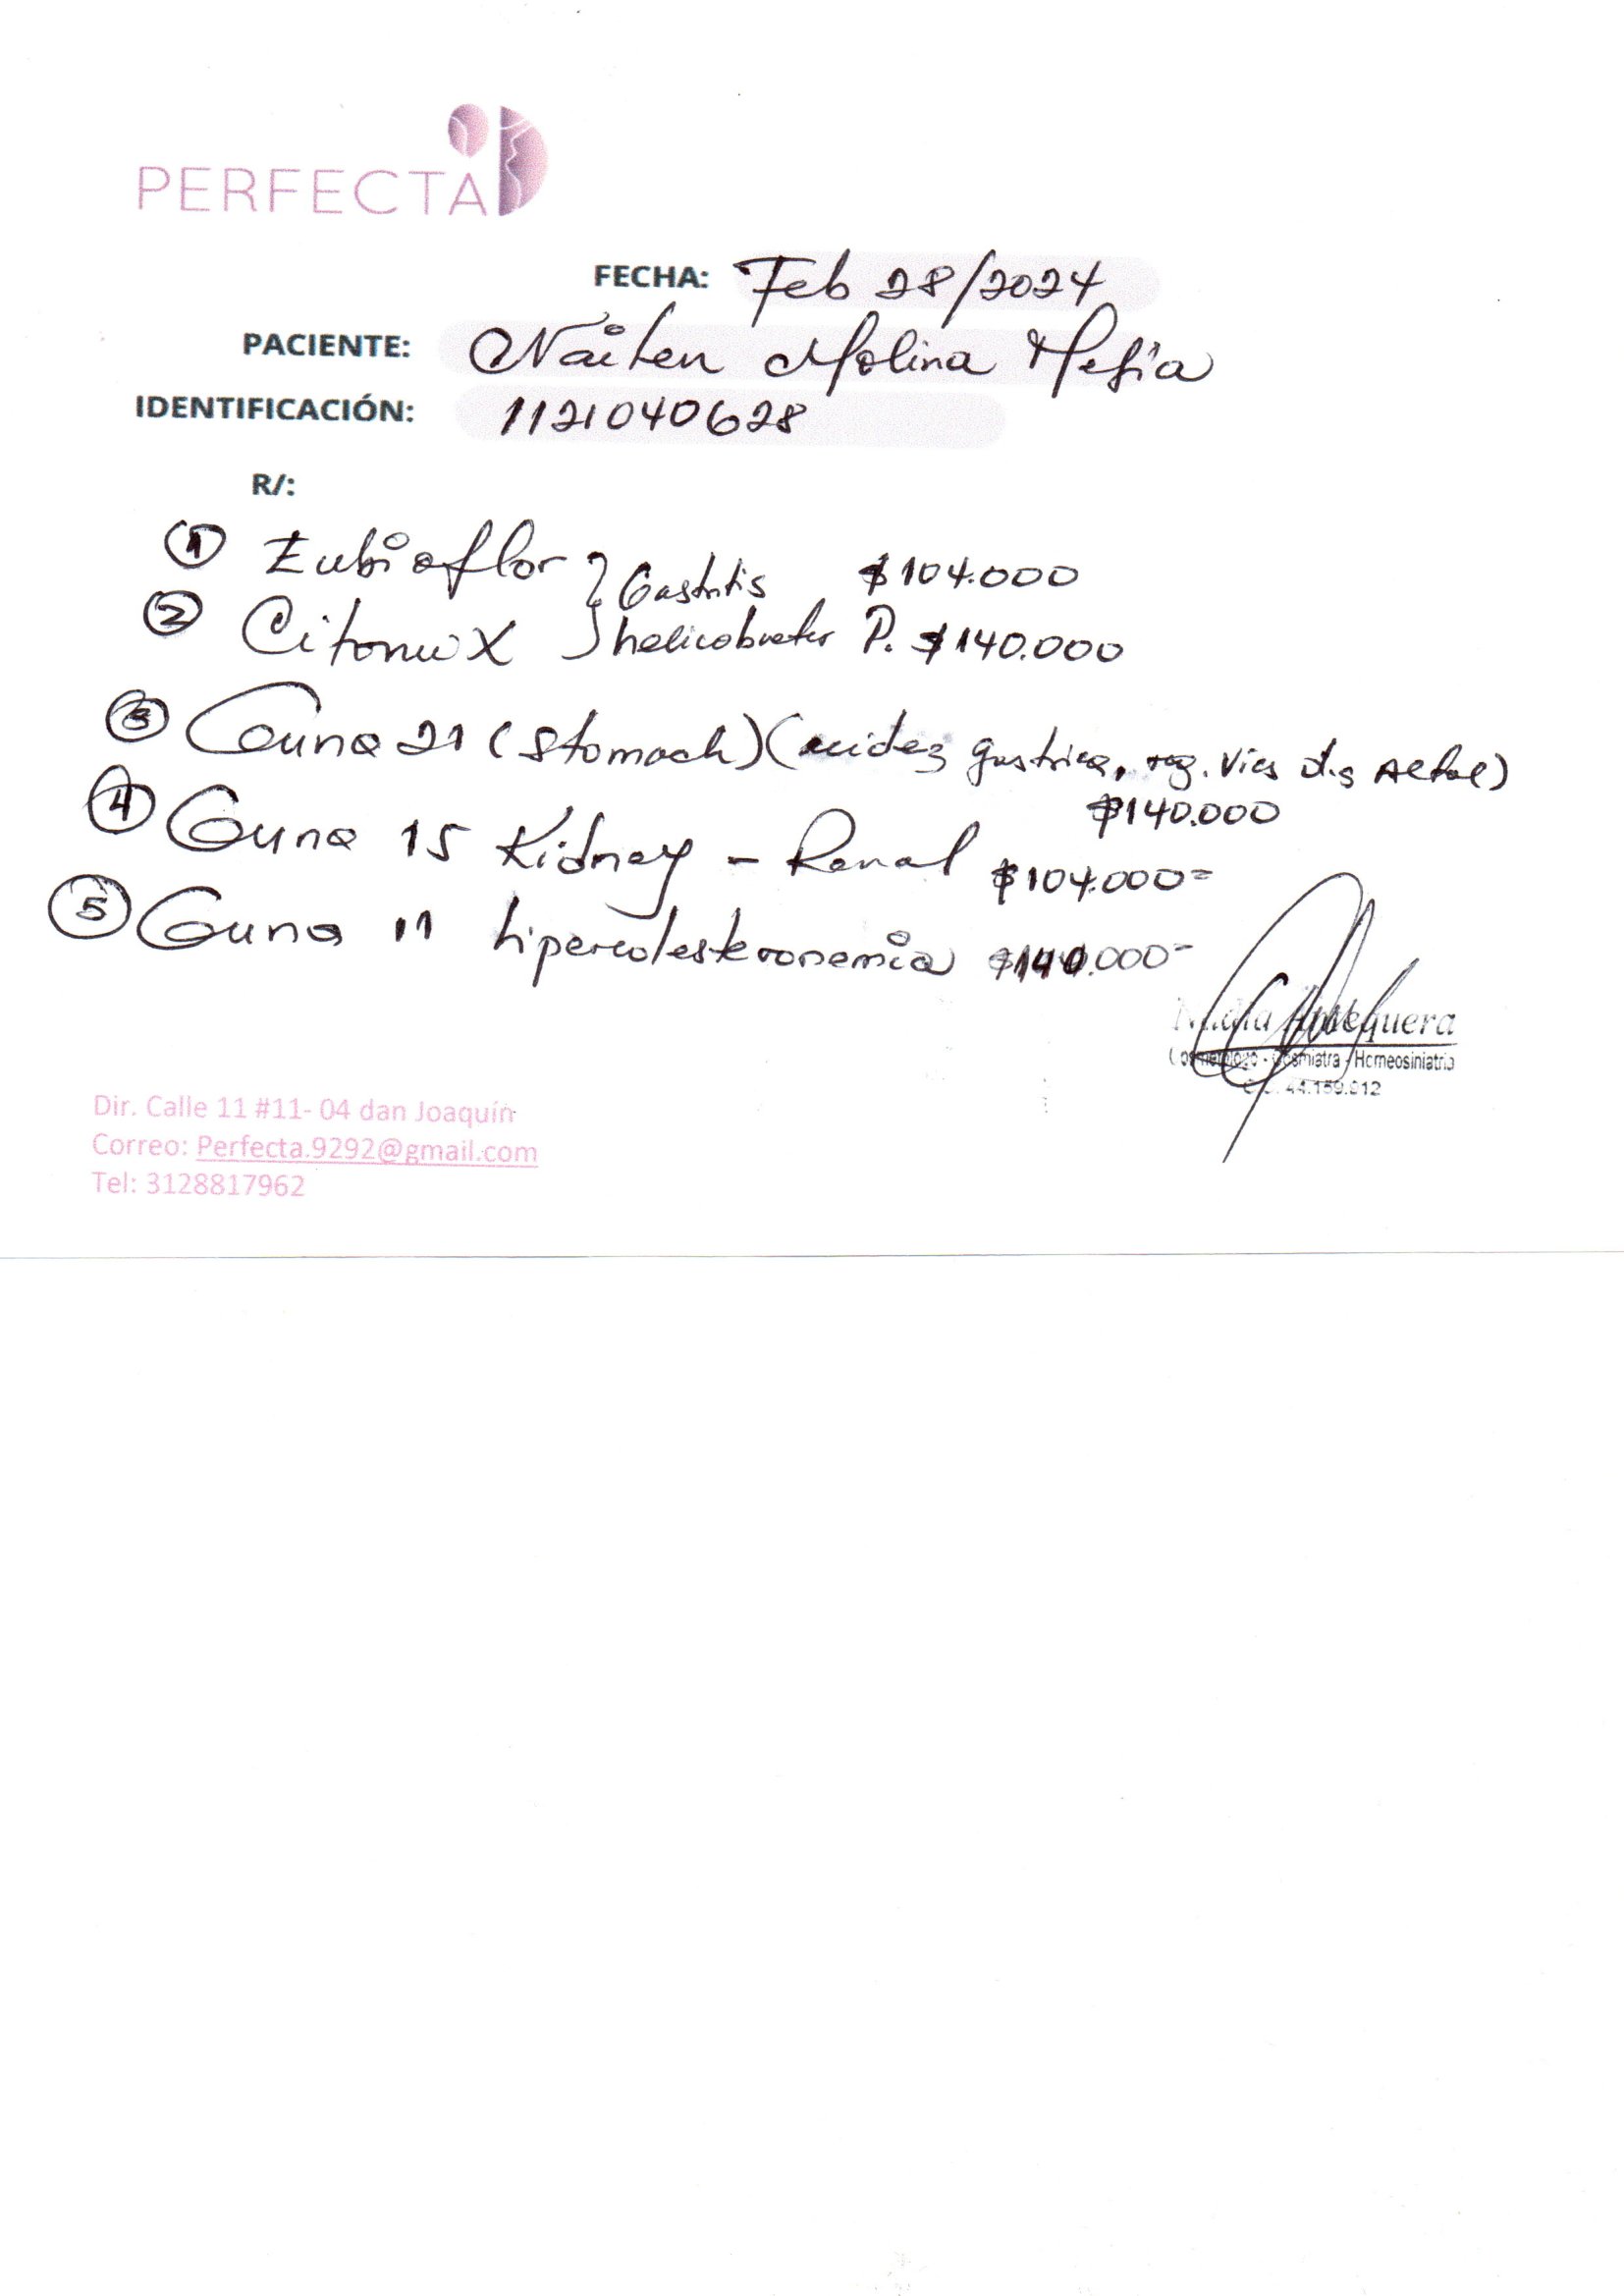 PERFECTA
FECHA: Feb 28/2024
PACIENTE: Naiten Molina Mefia
IDENTIFICACIÓN: 1121040628
R/:
① Eubioflor } Gastritis $104.000
② Citomix } helicobacter P. $140.000
③ Guna 21 (Stomach) (acidez gastrica, reg. Vias dig Altas)
$140.000
④ Guna 15 Kidney - Renal $104.000=
⑤ Guna 11 hipercolesteronemia $140.000=
Antequera
Cosmiatra - Homeosiniatria
C.C. 44.159.912
Dir. Calle 11 #11- 04 dan Joaquín
Correo: Perfecta.9292@gmail.com
Tel: 3128817962